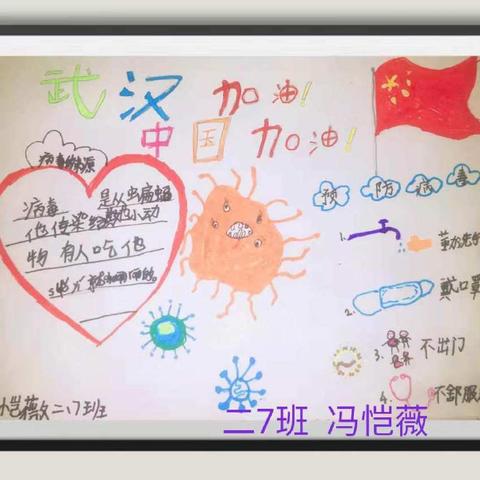 武汉 加油!
中国 加油!
病毒的来源
病毒 是从蝙蝠
他传染给其他小动
物 有人吃他
预防病毒
1.
勤洗手
2. 戴口罩
3. 不出门
4. 不舒服
恺薇二、7班
二7班 冯恺薇